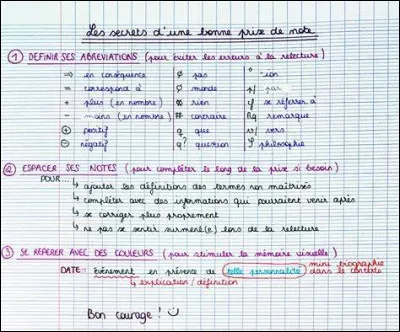 Les secrets d'une bonne prise de note
① DEFINIR SES ABREVIATIONS (pour éviter les erreurs à la relecture)
⇒ en conséquence ø pas ° -ion
= correspond à monde p/ par
+ plus (en nombre) rien cf se référer à
- moins (en nombre) # contraire Rq remarque
⊕ positif q que vs/ vers
⊖ négatif q? question philosophie
② ESPACER SES NOTES (pour compléter le long de la prise si besoin)
POUR...
↳ ajouter les définitions des termes non maîtrisés
↳ compléter avec des informations qui pourraient venir après
↳ se corriger plus proprement
↳ ne pas se sentir surmené(e) lors de la relecture
③ SE REPERER AVEC DES COULEURS (pour stimuler la mémoire visuelle)
DATE : Evènement en présence de telle personnalité mini biographie dans le contexte
↳ explication / définition
Bon courage !